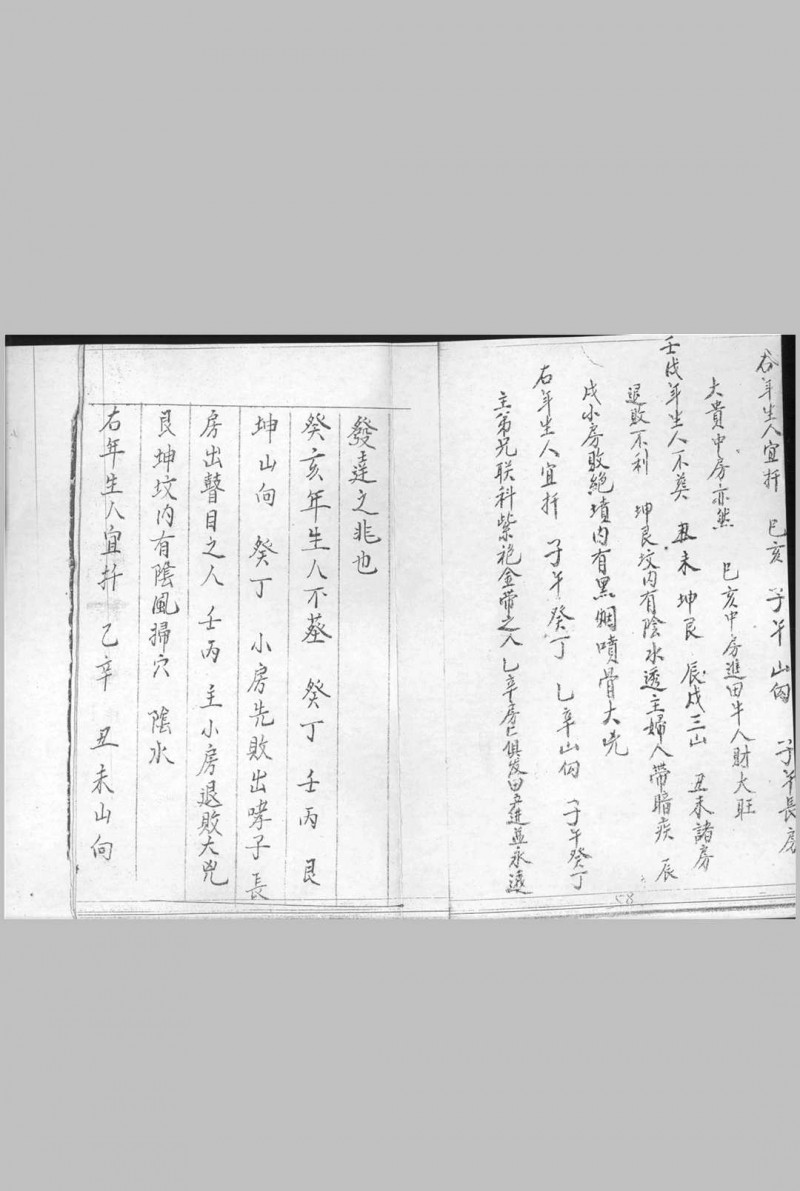 右年生人宜扦　巳亥　子午山向　子午長房
大貴中房亦然　巳亥中房進田牛人財大旺
壬戌年生人不塟　丑未　坤艮　辰戌三山　丑未諸房
退敗不利　坤艮坟内有陰水透主婦人帶暗疾　辰
戌小房敗絶墳内有黑烟噴骨大凶
右年生人宜扦　子午癸丁　乙辛山向　子午癸丁
主弟兄联科紫袍金帶之人乙辛房俱发田進益永遠
58
發達之兆也
癸亥年生人不塟　癸丁　壬丙　艮
坤山向　癸丁　小房先敗出哮子　長
房出瞽目之人　壬丙　主小房退敗大兇
艮坤坟内有陰風掃穴　陰水
右年生人宜扦　乙辛　丑未山向